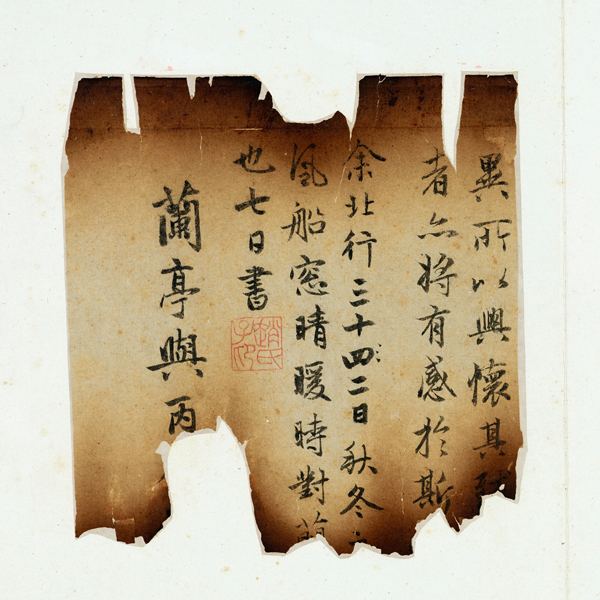 異所以興懷其致
者亦将有感於斯
余北行三十四二日秋冬
風船窓晴暖時對蘭
也七日書
趙氏子昂
蘭亭與丙